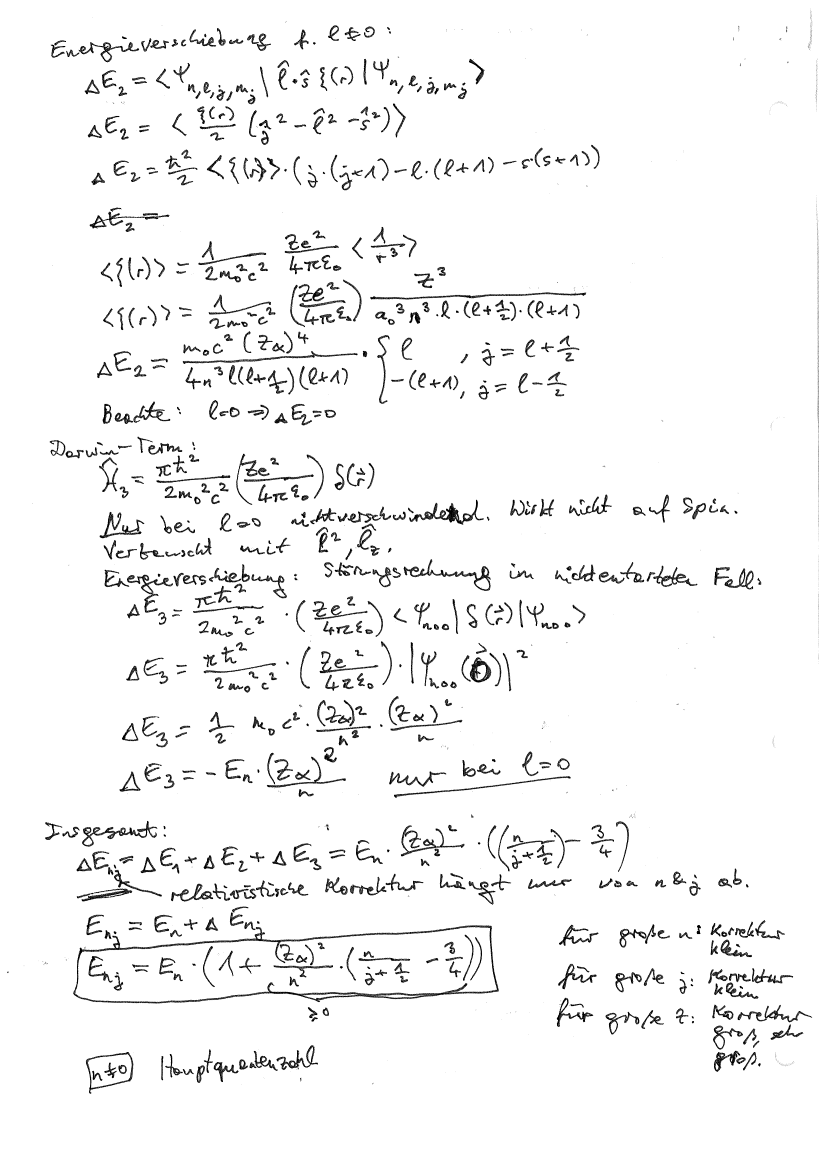 Energieverschiebung f. l≠0:
ΔE₂ = <Ψₙ,ₗ,ⱼ,ₘⱼ | l̂·ŝ ξ(r) | Ψₙ,ₗ,ⱼ,ₘⱼ>
ΔE₂ = < ξ(r)/2 (ĵ² - l̂² - ŝ²)>
ΔE₂ = ħ²/2 <ξ(r)>·(j·(j+1) - l·(l+1) - s(s+1))
ΔE₂ =
<ξ(r)> = 1/(2m₀²c²) Ze²/(4πε₀) <1/r³>
<ξ(r)> = 1/(2m₀²c²) (Ze²/(4πε₀)) Z³/(a₀³n³·l·(l+½)·(l+1))
ΔE₂ = m₀c²(Zα)⁴/(4n³l(l+½)(l+1)) · { l , j = l+½
-(l+1), j = l-½
Beachte: l=0 ⇒ ΔE₂=0
Darwin-Term:
Ĥ₃ = πħ²/(2m₀²c²) (Ze²/(4πε₀)) δ(r⃗)
Nur bei l=0 nichtverschwindend. Wirkt nicht auf Spin.
Vertauscht mit l̂², l̂_z.
Energieverschiebung: Störungsrechnung im nichtentarteten Fall:
ΔE₃ = πħ²/(2m₀²c²) · (Ze²/(4πε₀)) <Ψₙ₀₀|δ(r⃗)|Ψₙ₀₀>
ΔE₃ = πħ²/(2m₀²c²) · (Ze²/(4πε₀)) · |Ψₙ₀₀(0⃗)|²
ΔE₃ = 1/2 m₀c² · (Zα)²/n² · (Zα)²/n
ΔE₃ = -Eₙ·(Zα)²/n nur bei l=0
Insgesamt:
ΔEₙⱼ = ΔE₁ + ΔE₂ + ΔE₃ = Eₙ · (Zα)²/n² · ((n/(j+½)) - 3/4)
relativistische Korrektur hängt nur von n & j ab.
Eₙⱼ = Eₙ + ΔEₙⱼ
Eₙⱼ = Eₙ · (1 + (Zα)²/n² · (n/(j+½) - 3/4))
≥0
für große n: Korrektur klein
für große j: Korrektur klein
für große Z: Korrektur groß, sehr groß.
n≠0 Hauptquantenzahl